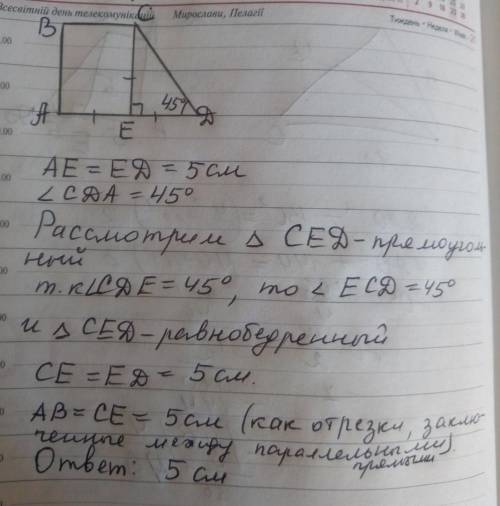 Всесвітній день телекомунікацій Мирослави, Пелагії
Тиждень • Неделя • Week
B C
45°
A E D
AE = ED = 5 см
∠CDA = 45°
Рассмотрим △ CED - прямоугол-
ный
т.к ∠CDE = 45°, то ∠ ECD = 45°
и △ CED - равнобедренный
CE = ED = 5 см.
AB = CE = 5 см (как отрезки, заклю-
ченные между параллельными).
прямыми
Ответ: 5 см